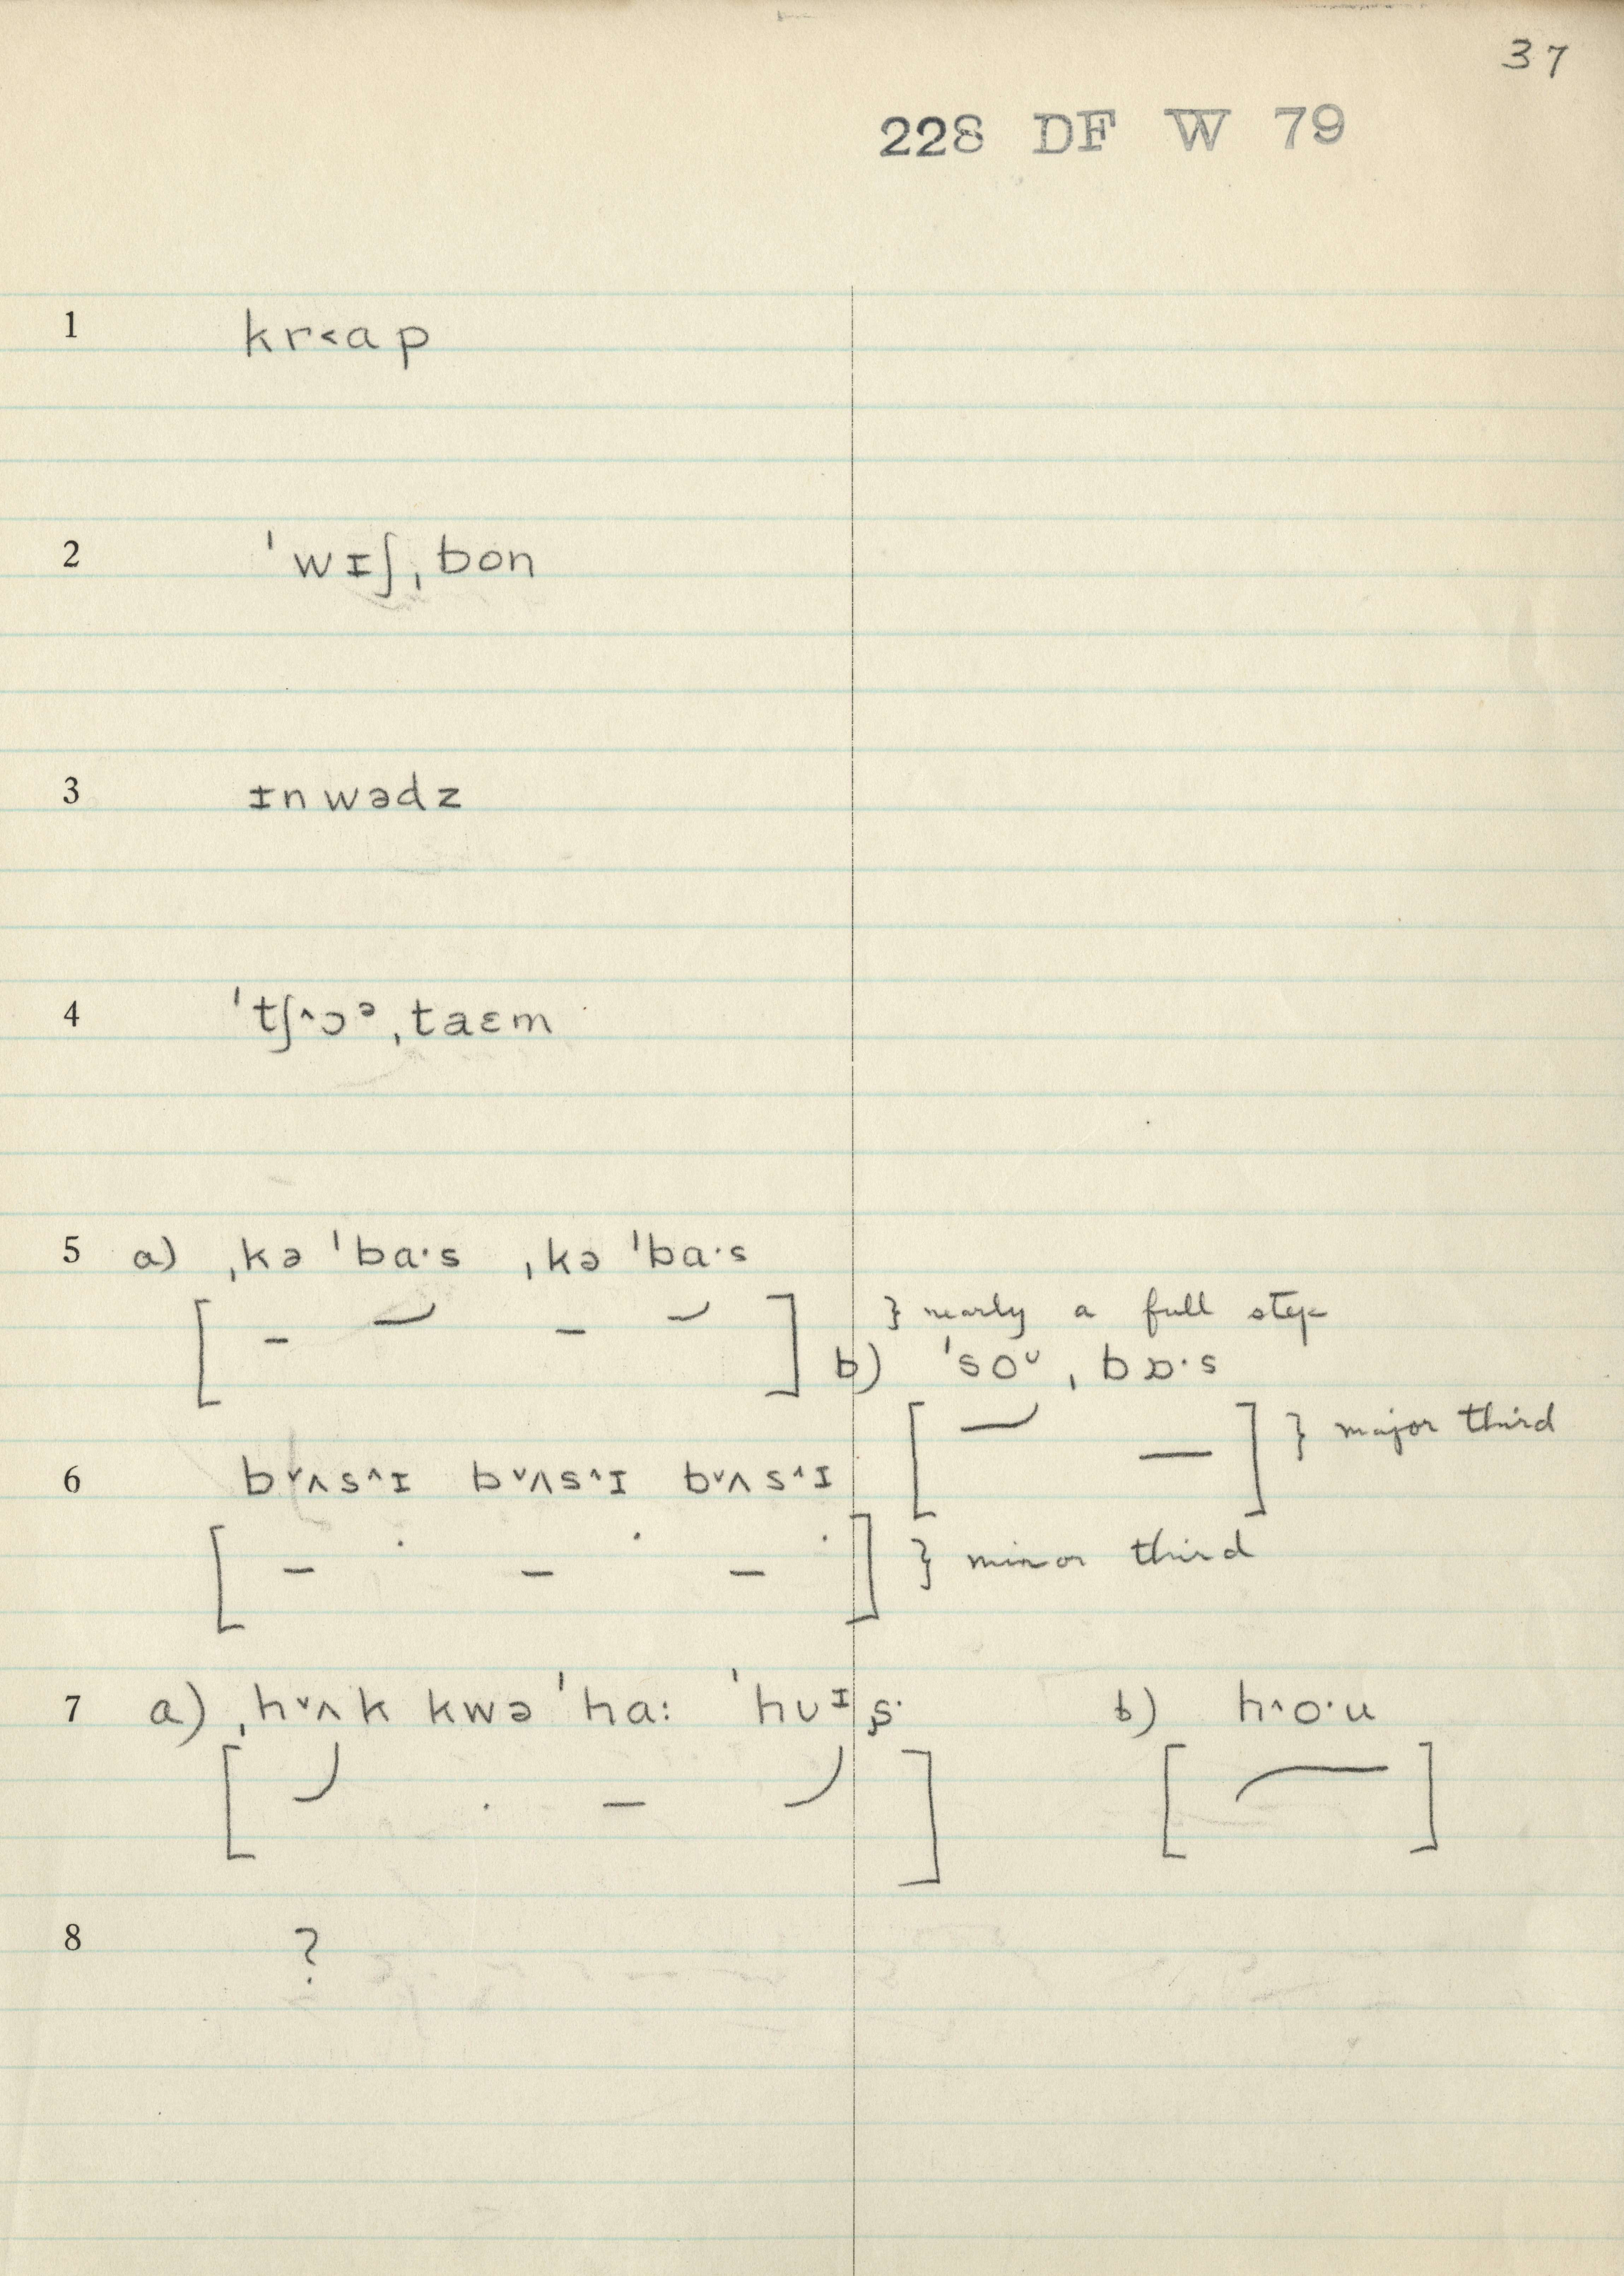 37
228 DF W 79
1 kr˂ap
2 ˈwɪʃˌbon
3 ɪnwədz
4 ˈtʃ˄ɔᵊˌtaɛm
5 a) ˌkəˈba·s ˌkəˈba·s
} nearly a full step
b) ˈsoᵛˌbɒ·s
} major third
6 b˅ʌs˄ɪ b˅ʌs˄ɪ b˅ʌs˄ɪ
} minor third
7 a) ˌh˅ʌk kwəˈha: ˈhʊᶦʂ· b) h˄o·u
8 ?